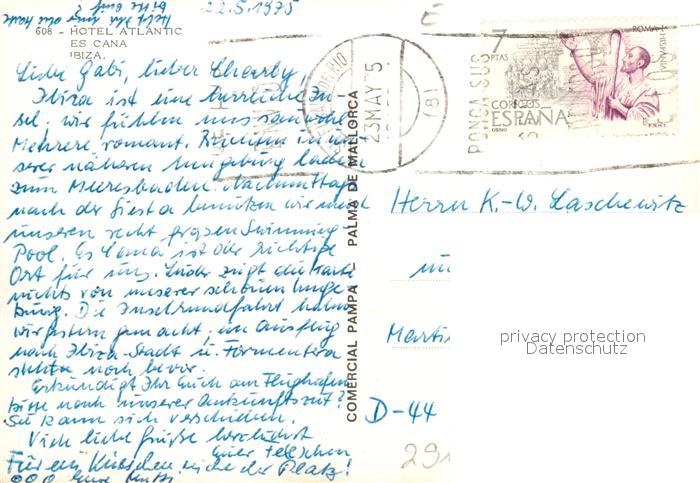 22.5.1975
608 - HOTEL ATLANTIC
ES CANA
IBIZA.
Liebe Gabi, lieber Charly,
Ibiza ist eine herrliche In-
sel. wir fühlen uns sauwohl
Mehrere romant. Buchten in un
serer näheren Umgebung laden
zum Meeresbaden. Nachmittags
nach der Siesta benutzen wir
unseren recht grossen Swimming
Pool. Es Cana ist der richtige
Ort für uns. Leider zeigt die Karte
nichts von unserer schönen Umge
bung. Die Inselrundfahrt haben
wir gestern gemacht, ein Ausflug
nach Ibiza-Stadt u. Formentera
steht noch bevor.
Erkundigt Ihr Euch am Flughafen
bitte nach unserer Ankunftszeit?
Sie kann sich verschieben.
Viele liebe Grüße herzlichst
Euer
Für ein Küsschen, nicht der Platz!
COMERCIAL PAMPA - PALMA DE MALLORCA
23 MAY 75
(8)
PONGA SUS
7
PTAS
ROMA +
HISPANIA
CORREOS
ESPAÑA
F.N.M.T.
Herrn K.-W. Laschewitz
D-44
privacy protection
Datenschutz